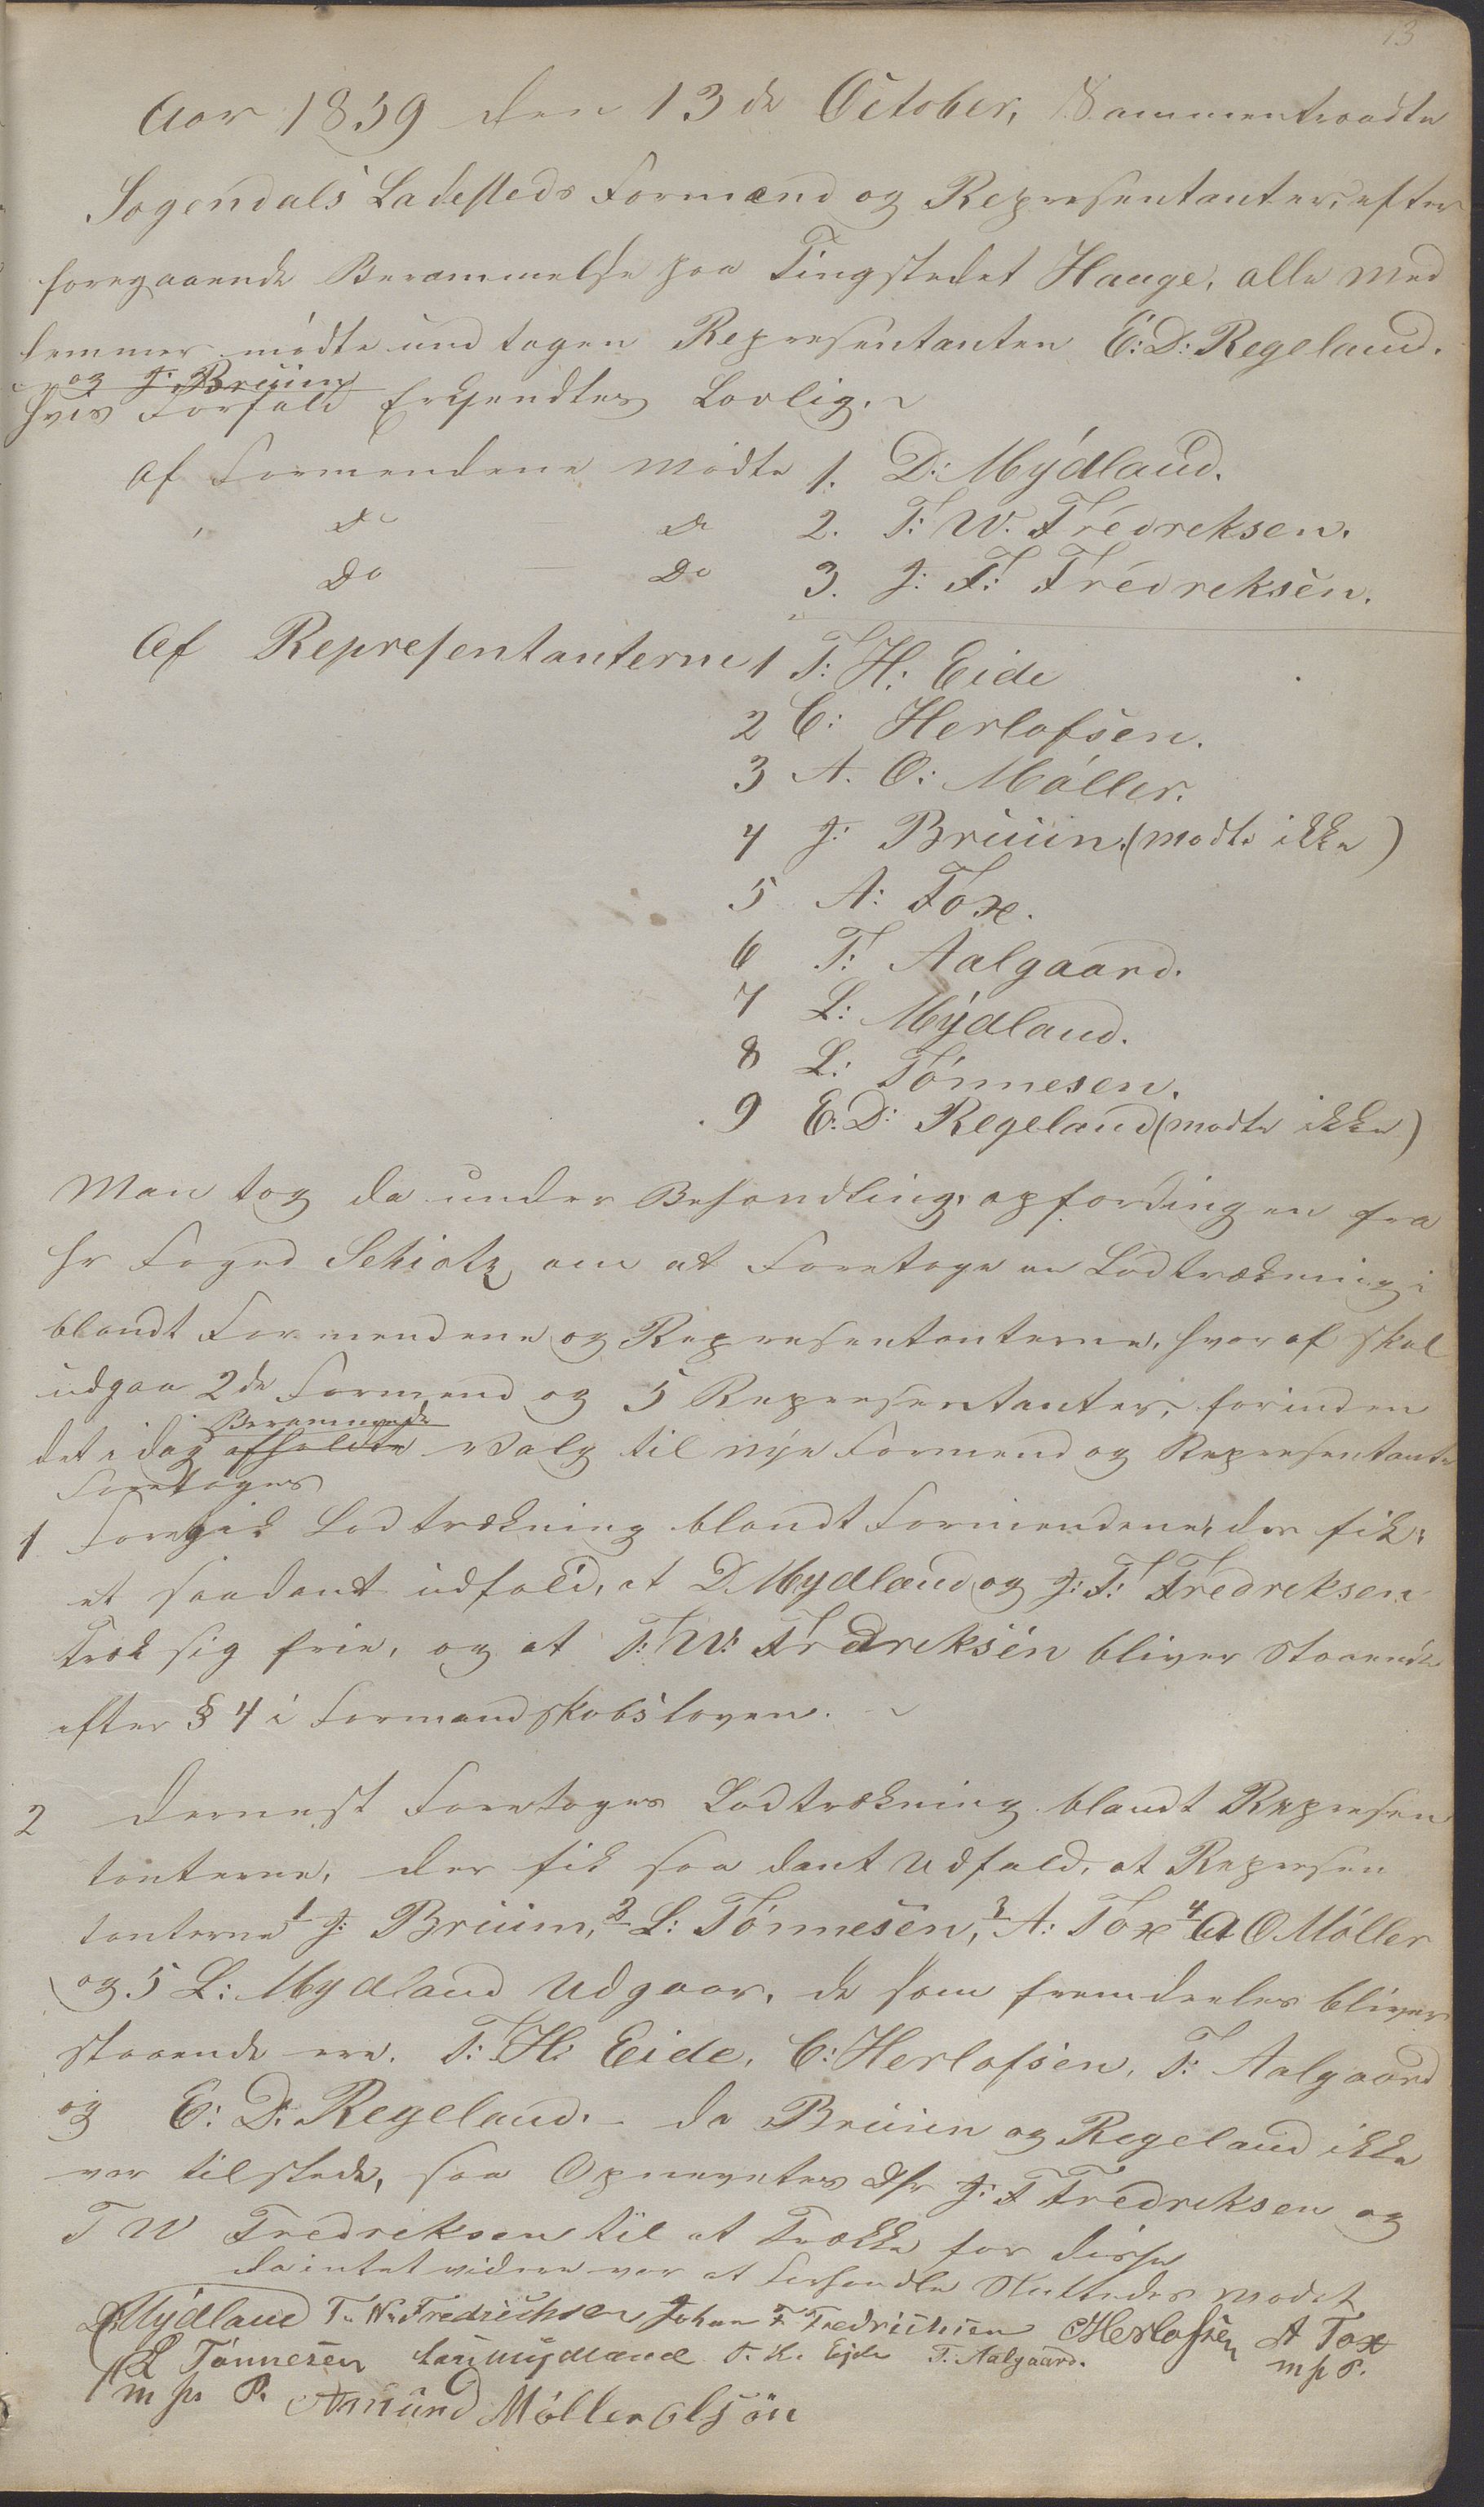 13
Aar 1839 den 13de October, Sammentraadte
Sogendals Ladesteds Formænd og Representanter, efter
foregaaende Berammelse paa Tingstedet Hauge, alle Med
lemmer mødte undtagen Representanten E: D: Regeland.
og J: Bruun
hvis Forfald Erkjendtes Lovlig.
Af Formendene mødte 1. D: Mydland.
" do do 2. T: W. Fredreksen.
Do Do 3. J: F: Fredreksen.
Af Representanterne 1 T: H: Eide
2 C: Herlofsen.
3 A. O: Møller.
4 J: Bruun (mødte ikke)
5 A: Fox.
6 T: Aalgaard.
7 L: Mydland.
8 L: Tønnesen.
9 E. D: Regeland (mødte ikke)
Man tog da under Behandling, opfordingen fra
Hr Foged Schiøtz om at Foretage en Lodtrækning i
blandt Formendene og Representanterne, hvoraf skal
udgaa 2de Formend og 5 Representanter, forinden
Berammede
det i dag afholdte Valg til nye Formend og Representante
Foretages
1 Foregik Lodtrækning blandt Formendene, der fik
et saadant udfald, at D. Mydland og J: F: Fredreksen
Træk sig frie, og at T: W: Fredreksen bliver staaende
efter § 4 i Formandskabsloven.
2 Dernæst Foretoges Lodtrækning blandt Represen
tanterne, der fik saa dant Udfald, at Represen
tanterne 1 J: Bruun, 2 L: Tønnesen, 3 A: Fox 4 A O Møller
og 5 L: Mydland Udgaar, de som fremdeeles bliver
staaende ere. T: H: Eide, C: Herlofsen, T: Aalgaard
og E: D: Regeland. - da Bruun og Regeland ikke
var tilstede, saa Opnevntes Hr J: F Fredreksen og
T W Fredreksen til at Trække for disse
da intet videre var at Forhandle Sluttedes Mødet
D. Mydland T. W. Fredrichsen Johan F Fredrichsen C Herlofsen A Fox
L Tønnesen Lars Mydland T. H. Eide T. Aalgaard. m p P.
m p P. Amund Møller Olsøn